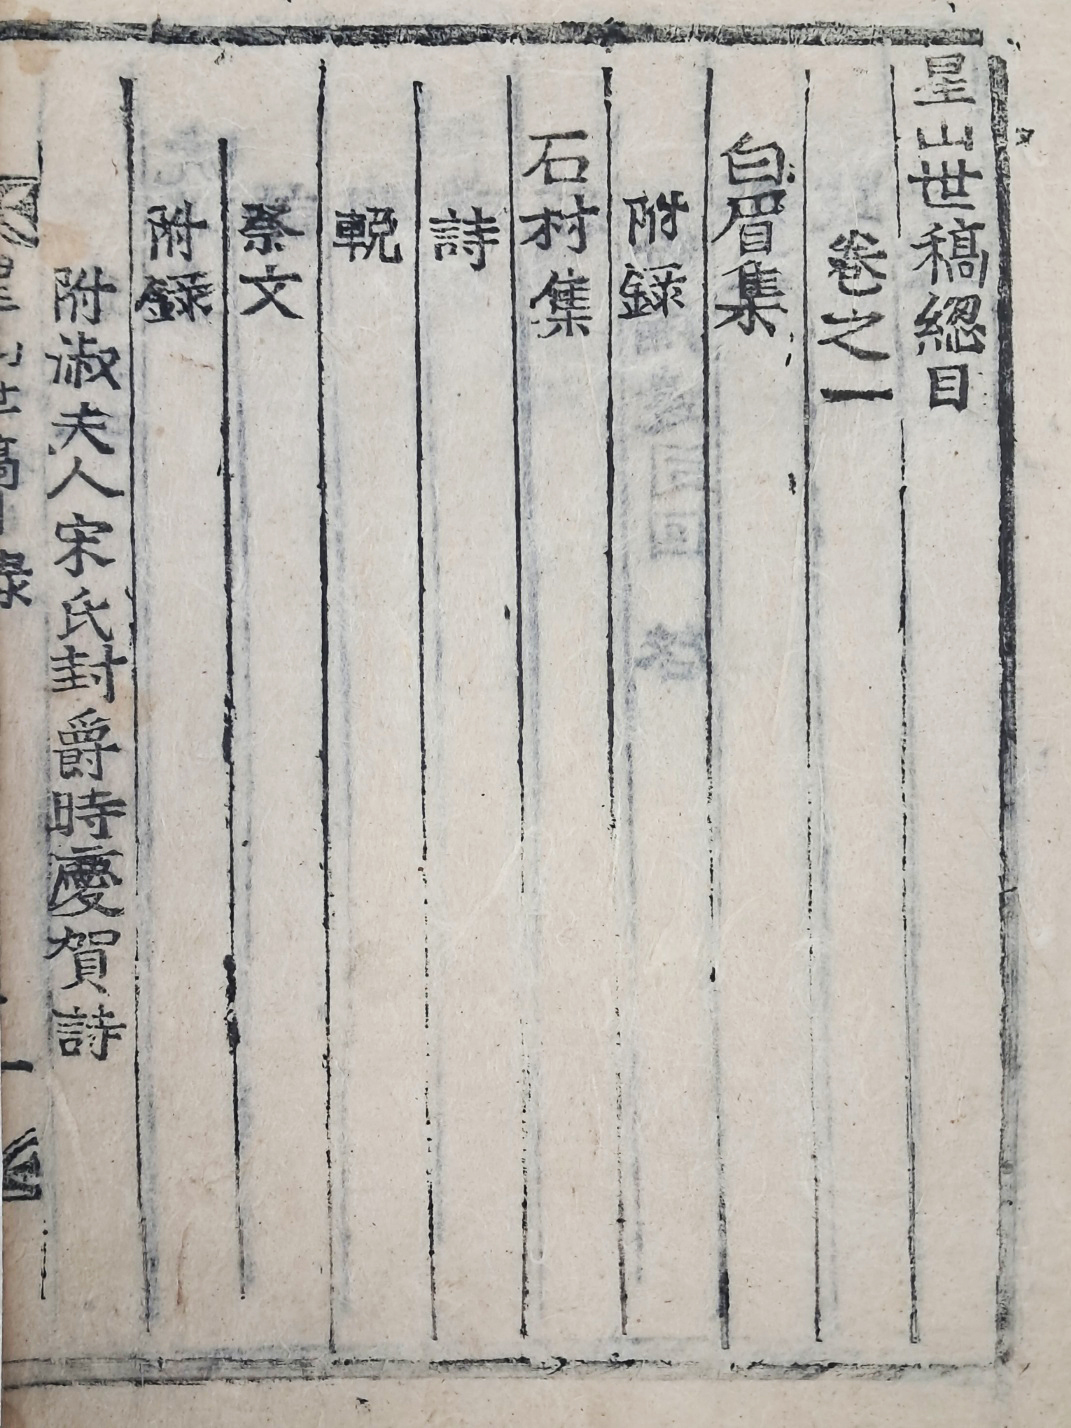 星山世稿緫目
卷之一
白眉集
附録
石村集
詩
輓
祭文
附録
附淑夫人宋氏封爵時慶賀詩
星山世稿
錄
一